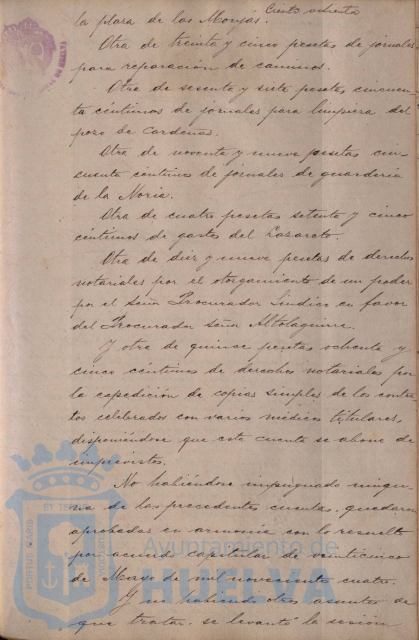 Ciento ochenta
la plaza de las Monjas.
Otra de treinta y cinco pesetas de jornales
para reparación de caminos.
Otra de sesenta y siete pesetas cincuen-
ta céntimos de jornales para limpieza del
pozo de Cardenas.
Otra de noventa y nueve pesetas cin-
cuenta céntimos de jornales de guarderia
de la Noria.
Otra de cuatro pesetas setenta y cinco
céntimos de gastos del Lazareto.
Otra de diez y nueve pesetas de derechos
notariales por el otorgamiento de un poder
por el Señor Procurador Síndico en favor
del Procurador Señor Altolaguirre.
Y otra de quince pesetas ochenta y
cinco céntimos de derechos notariales por
la expedición de copias simples de los contra-
tos celebrados con varios médicos titulares,
disponiéndose que esta cuenta se abone de
imprevistos.
No habiéndose impugnado ningu-
na de las precedentes cuentas, quedaron
aprobadas en armonía con lo resuelto
por acuerdo capitular de veinticinco
de Mayo de mil novecientos cuatro.
Y no habiendo otros asuntos de
que tratar, se levantó la sesión
DE HUELVA
PORTUS MARIS
ET TERRE
Ayuntamiento de
HUELVA